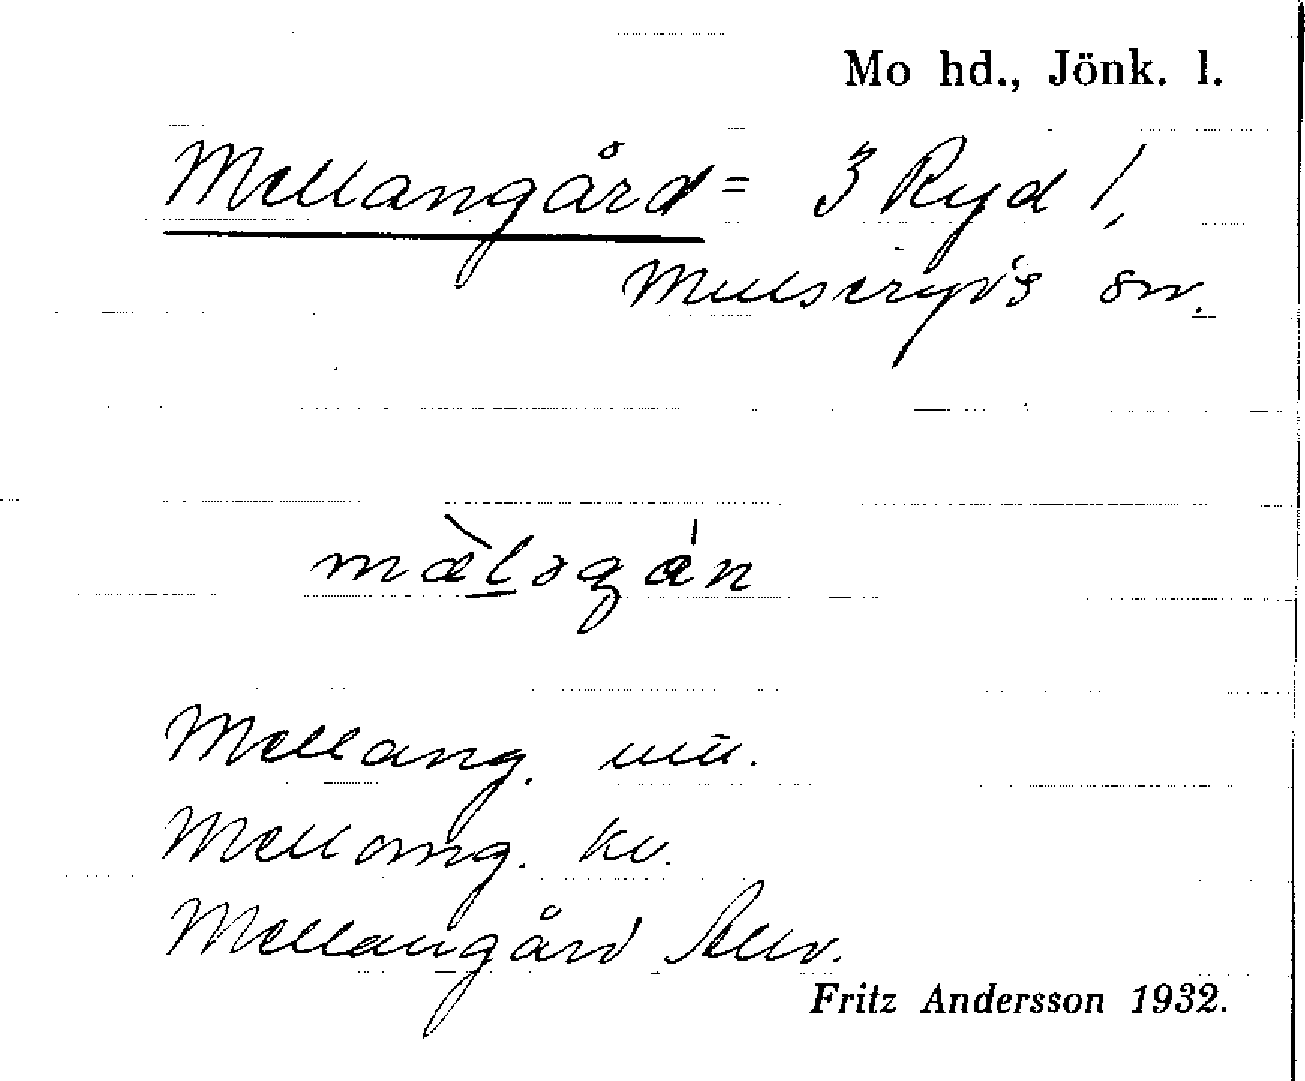 Mo hd., Jönk. l.
Mellangård = 3 Ryd 1,
Mulseryds sn.
mæ̀lǝgán
Mellang. uu.
Mellomg. kv.
Mellangård
Fritz Andersson 1932.